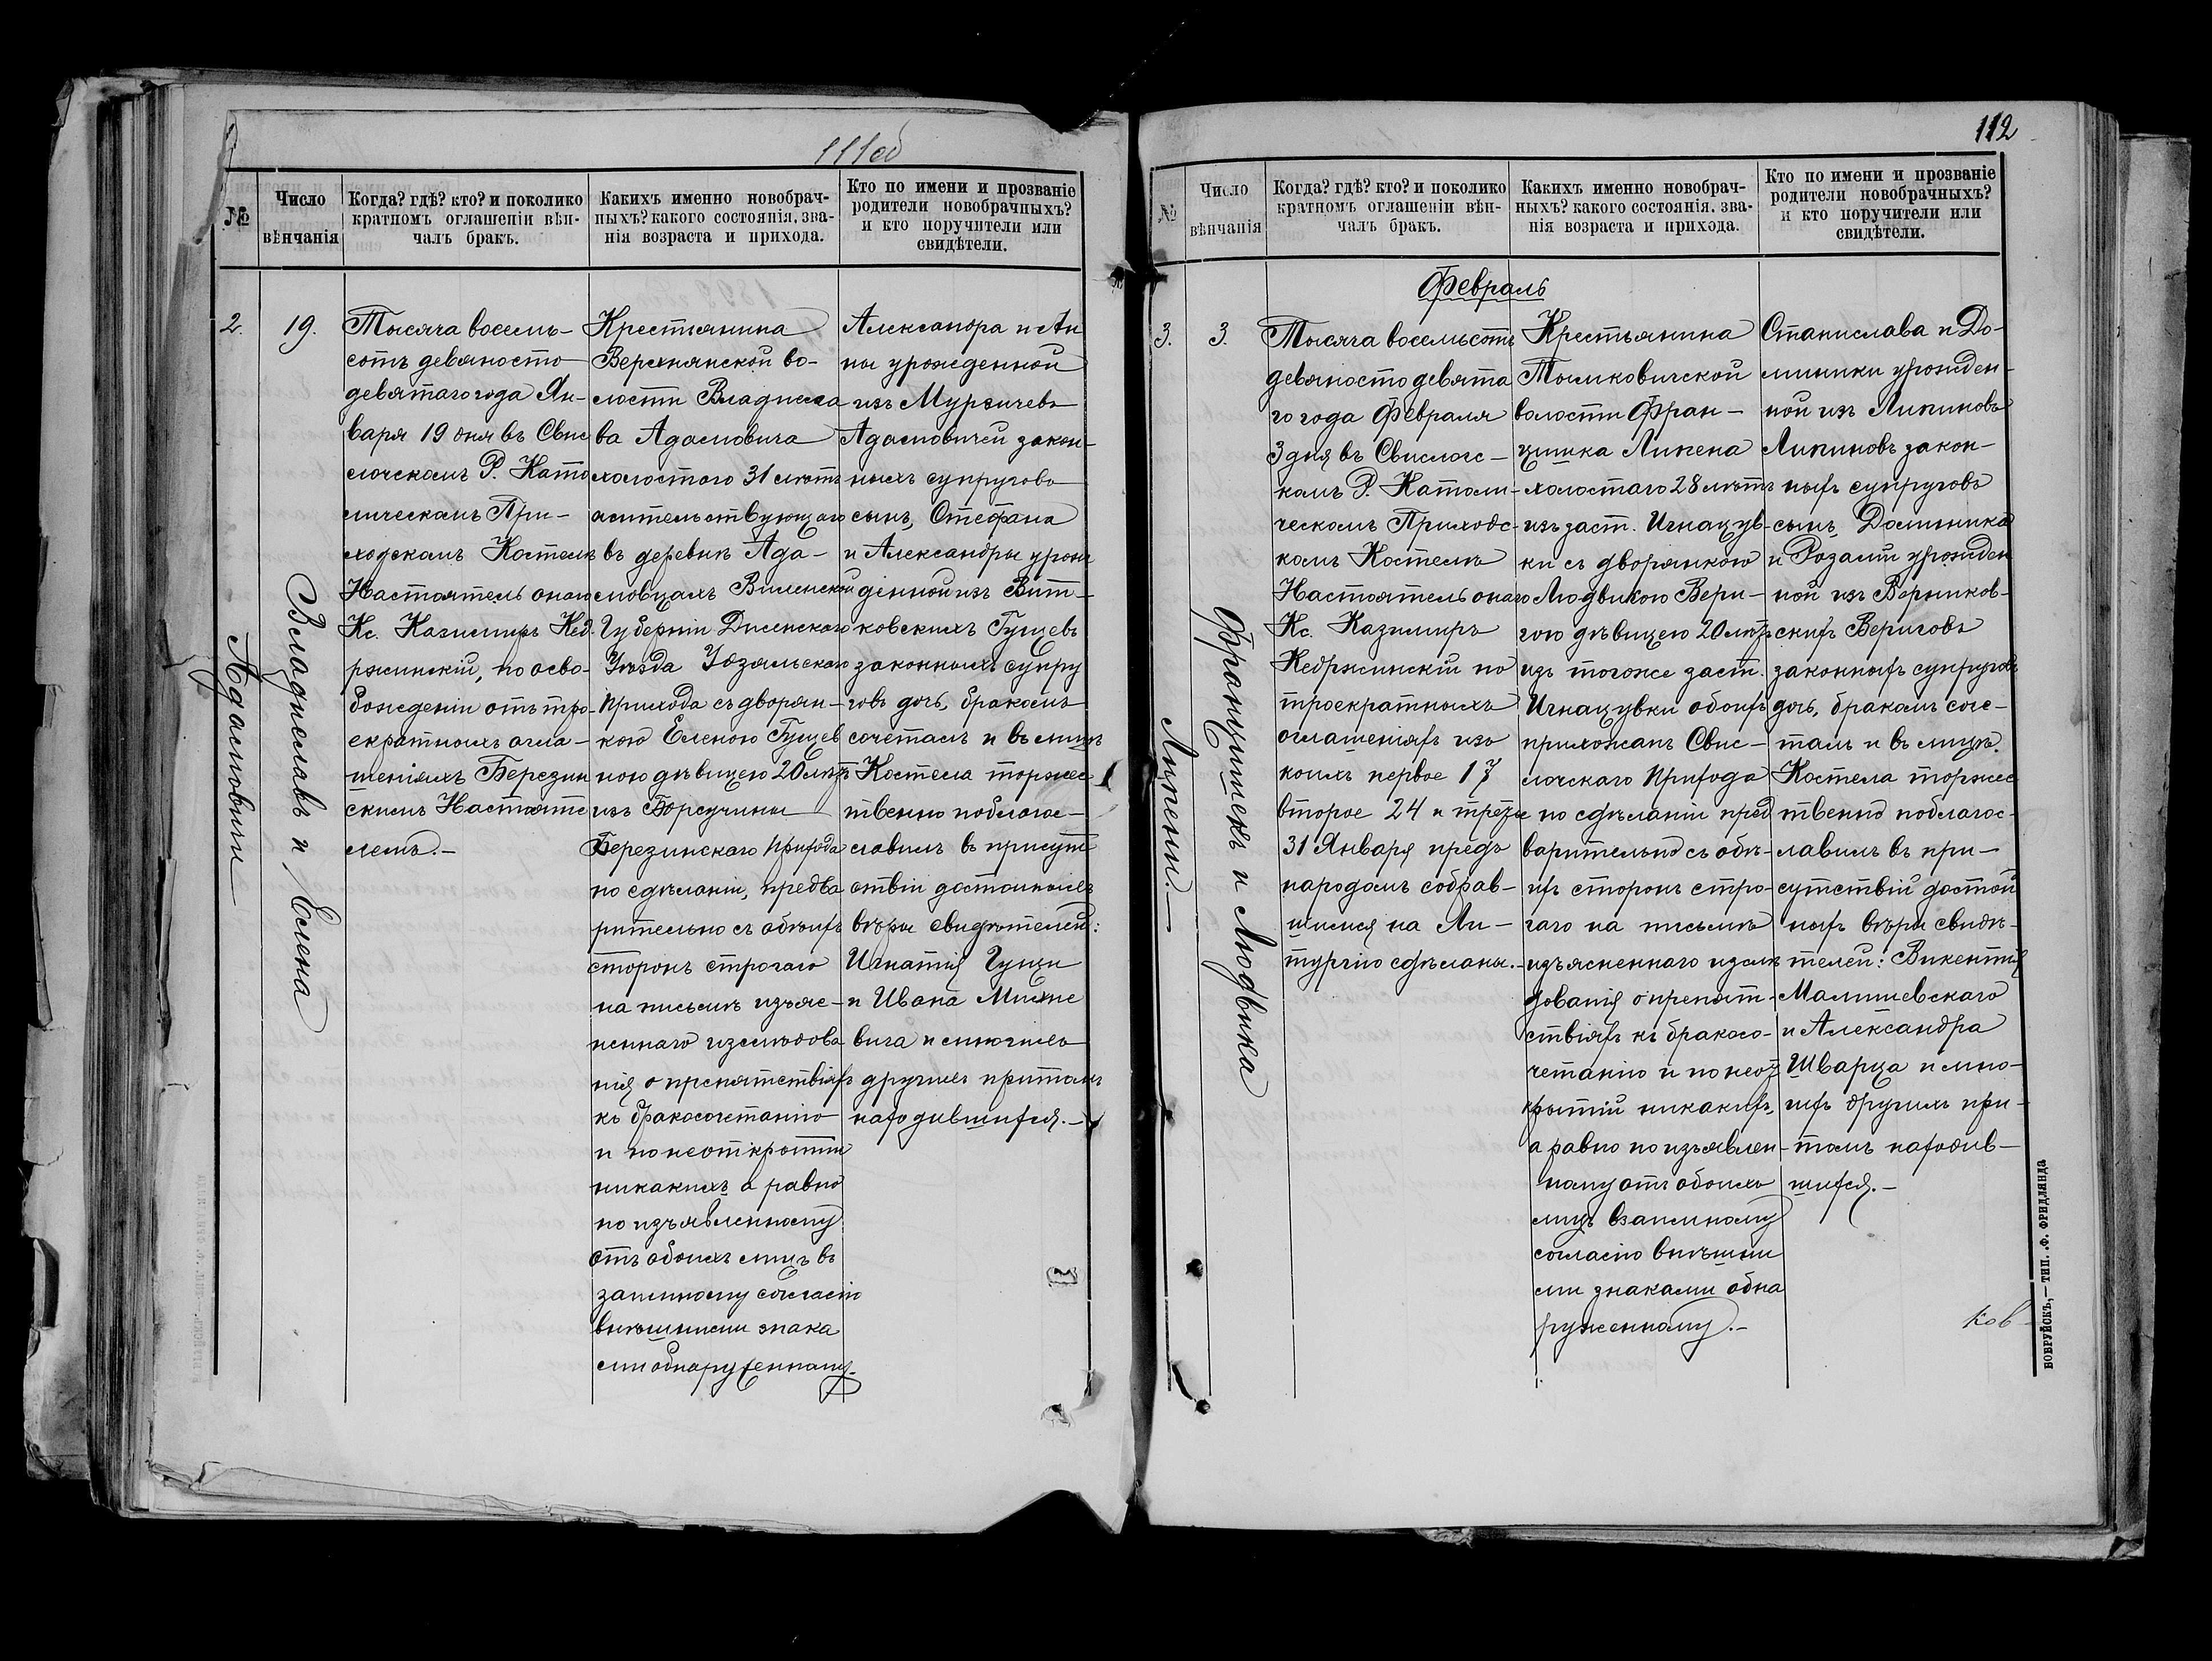 111об
№
Число
вѣнчанія
Когда? гдѣ? кто? и поколико
кратномъ оглашеніи вѣн-
чалъ бракъ.
Какихъ именно новобрач-
ныхъ? какого состоянія, зва-
нія возраста и прихода.
Кто по имени и прозваніе
родители новобрачныхъ?
и кто поручители или
свидѣтели.
2.
19.
Владиславъ и Елена
Адамовичи
Тысяча восемь-
сотъ девяносто
девятаго года Ян-
варя 19 дня въ Свис
лочскомъ Р. Като
лическомъ При-
ходскомъ Костелѣ
Настоятель онаго
Кс. Казимиръ Кед.
ржинскій, по осво-
божденіи отъ тро-
екратныхъ огла-
шеніяхъ Березин
скимъ Настояте
лемъ.-
Крестьянина
Верхнянской во-
лости Владисла
ва Адамовича
холостого 31 лѣтъ
жительствующаго
въ деревнѣ Ада-
мовцахъ Виленской
Губерніи Дисенскаго
Уѣзда Удзяльскаго
прихода съ дворян-
кою Еленою Гущев
ною дѣвицею 20 лѣтъ
изъ Борсучины
Березинскаго прихода
по сдѣланіи, предва
рительно съ обѣихъ
сторонъ строгаго
на письмѣ изъяс-
неннаго изслѣдова
нія о препятствіяхъ
къ бракосочетанію
и по неоткрытіи
никакихъ а равно
по изъявленному
отъ обоихъ лицъ в
заимному согласію
внѣшними знака
ми обнаруженному.
Александра и Ан
ны урожденной
изъ Мурзичевъ
Адамовичей закон-
ныхъ супруговъ
сынъ, Стефана
и Александры урож
денной изъ Вит-
ковскихъ Гущевъ
законныхъ супру
говъ дочь, бракомъ
сочеталъ и въ лицѣ
Костела торжес
твенно поблагос-
ловилъ въ присут
ствіи достойныхъ
вѣры свидѣтелей:
Игнатія Гущи
и Ивана Михне
вича и многихъ
другихъ притомъ
находившихся.-
112
№
Число
вѣнчанія
Когда? гдѣ? кто? и поколико
кратномъ оглашеніи вѣн-
чалъ бракъ.
Какихъ именно новобрач-
ныхъ? какого состоянія, зва-
нія возраста и прихода.
Кто по имени и прозваніе
родители новобрачныхъ?
и кто поручители или
свидѣтели.
Февраль
3.
3.
Францишекъ и Людвика
Липени.-
Тысяча восемьсотъ
девяносто девята
го года Февраля
3 дня въ Свислоч-
комъ Р. Католи-
ческомъ Приходс-
комъ Костелѣ
Настоятель онаго
Кс. Казимиръ
Кедржинскій по
троекратныхъ
оглашеніяхъ изъ
коихъ первое 17
второе 24 и третье
31 Января предъ
народомъ собрав-
шимся на Ли-
тургію сдѣланы.-
Крестьянина
волости Фран-
цишка Липеня
холостаго 28 лѣтъ
изъ заст. Игнацув-
ки съ дворянкою
Людвикою Вери-
гою дѣвицею 20 лѣтъ
изъ тогоже заст.
Игнацувки обоихъ
прихожанъ Свис-
лочскаго Прихода
по сдѣланіи пред
варительно съ обѣ-
ихъ сторонъ стро-
гаго на письмѣ
изъясненнаго изслѣ
дованія о препят-
ствіяхъ къ бракосо-
четанію и по неот
крытіи никакихъ,
а равно по изъявлен-
ному отъ обоихъ
лицъ взаимному
согласію внѣшни
ми знаками обна
руженному.-
Станислава и До-
миники урожден-
ной изъ Липиновъ
Липиновъ закон-
ныхъ супруговъ
сынъ, Доминика
и Розаліи урожден
ной изъ
скихъ Вериговъ
законныхъ супруговъ
дочь, бракомъ соче-
талъ и въ лицѣ
Костела торжес
твенно поблагос-
лавилъ въ при-
сутствіи достой
ныхъ вѣры свидѣ-
телей: Викентія
Малишевскаго
и Александра
Шварца и мно-
гихъ другихъ при-
томъ находив-
шихся.-
ков
БОБРУЙСКЪ,—ТИП. Ф. ФРИДЛЯНДА